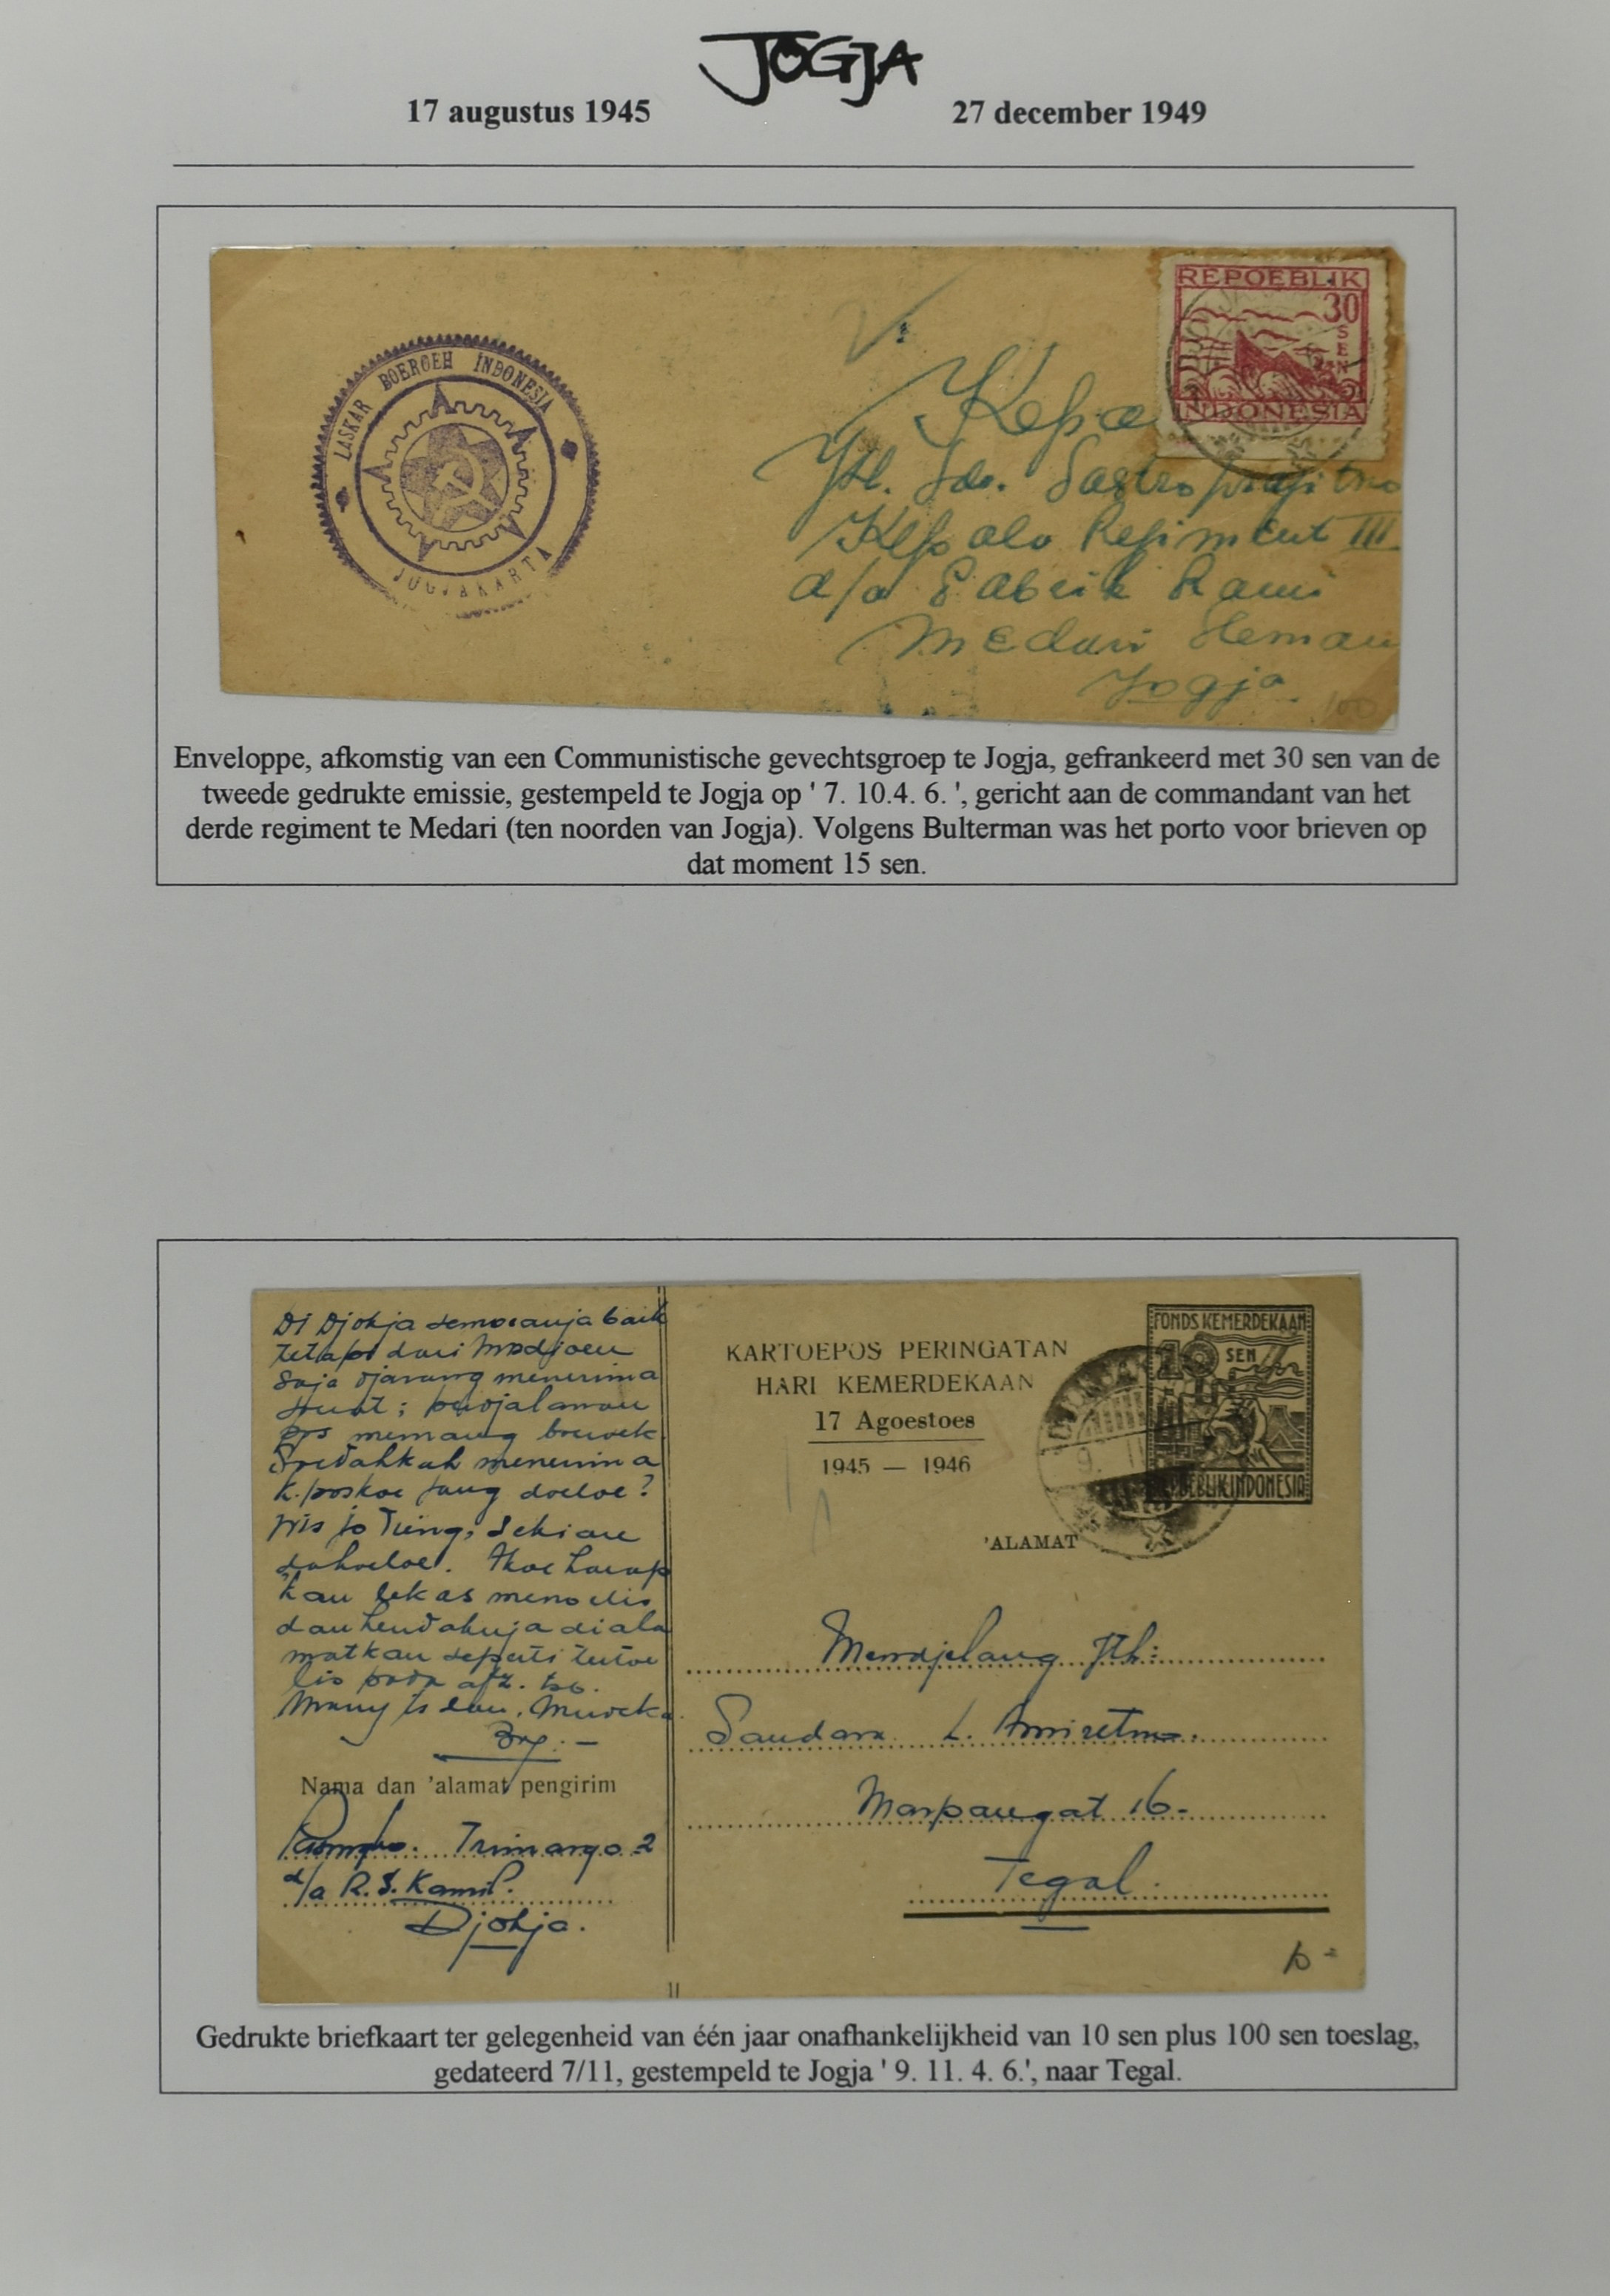 JOGJA
17 augustus 1945 27 december 1949
LASKAR BOEROEH INDONESIA
JOGJAKARTA
REPOEBLIK
30
SEN
INDONESIA
Kepa
Jth. Sdr. Sastroprajitno
Kepala Resiment III
d/a Pabrik Rami
Medari Sleman
Jogja
100
Enveloppe, afkomstig van een Communistische gevechtsgroep te Jogja, gefrankeerd met 30 sen van de
tweede gedrukte emissie, gestempeld te Jogja op ' 7. 10.4. 6. ', gericht aan de commandant van het
derde regiment te Medari (ten noorden van Jogja). Volgens Bulterman was het porto voor brieven op
dat moment 15 sen.
Di Djokja semoeanja baik
tetapi dari Madjoen
saja djarang menerima
surat; perdjalanan
pos memang broewek.
Soedahkah menerima
k.poskoe jang doeloe?
Wis jo Ting, sekian
dahoeloe. Akoe harap
kau lekas menoelis
dan hendaknja diala
matkan seperti tertoe
lis pada afz. tsb.
Nama dan 'alamat pengirim
Trimargo 2
d/a R.S. Kamil.
Djokja.
KARTOEPOS PERINGATAN
HARI KEMERDEKAAN
17 Agoestoes
1945 — 1946
FONDS KEMERDEKAAN
10 SEN
REPOEBLIK INDONESIA
'ALAMAT
Mendjelang Jth:
Saudara L. Amiretno.
Marpangat 16-
Tegal.
Gedrukte briefkaart ter gelegenheid van één jaar onafhankelijkheid van 10 sen plus 100 sen toeslag,
gedateerd 7/11, gestempeld te Jogja ' 9. 11. 4. 6.', naar Tegal.